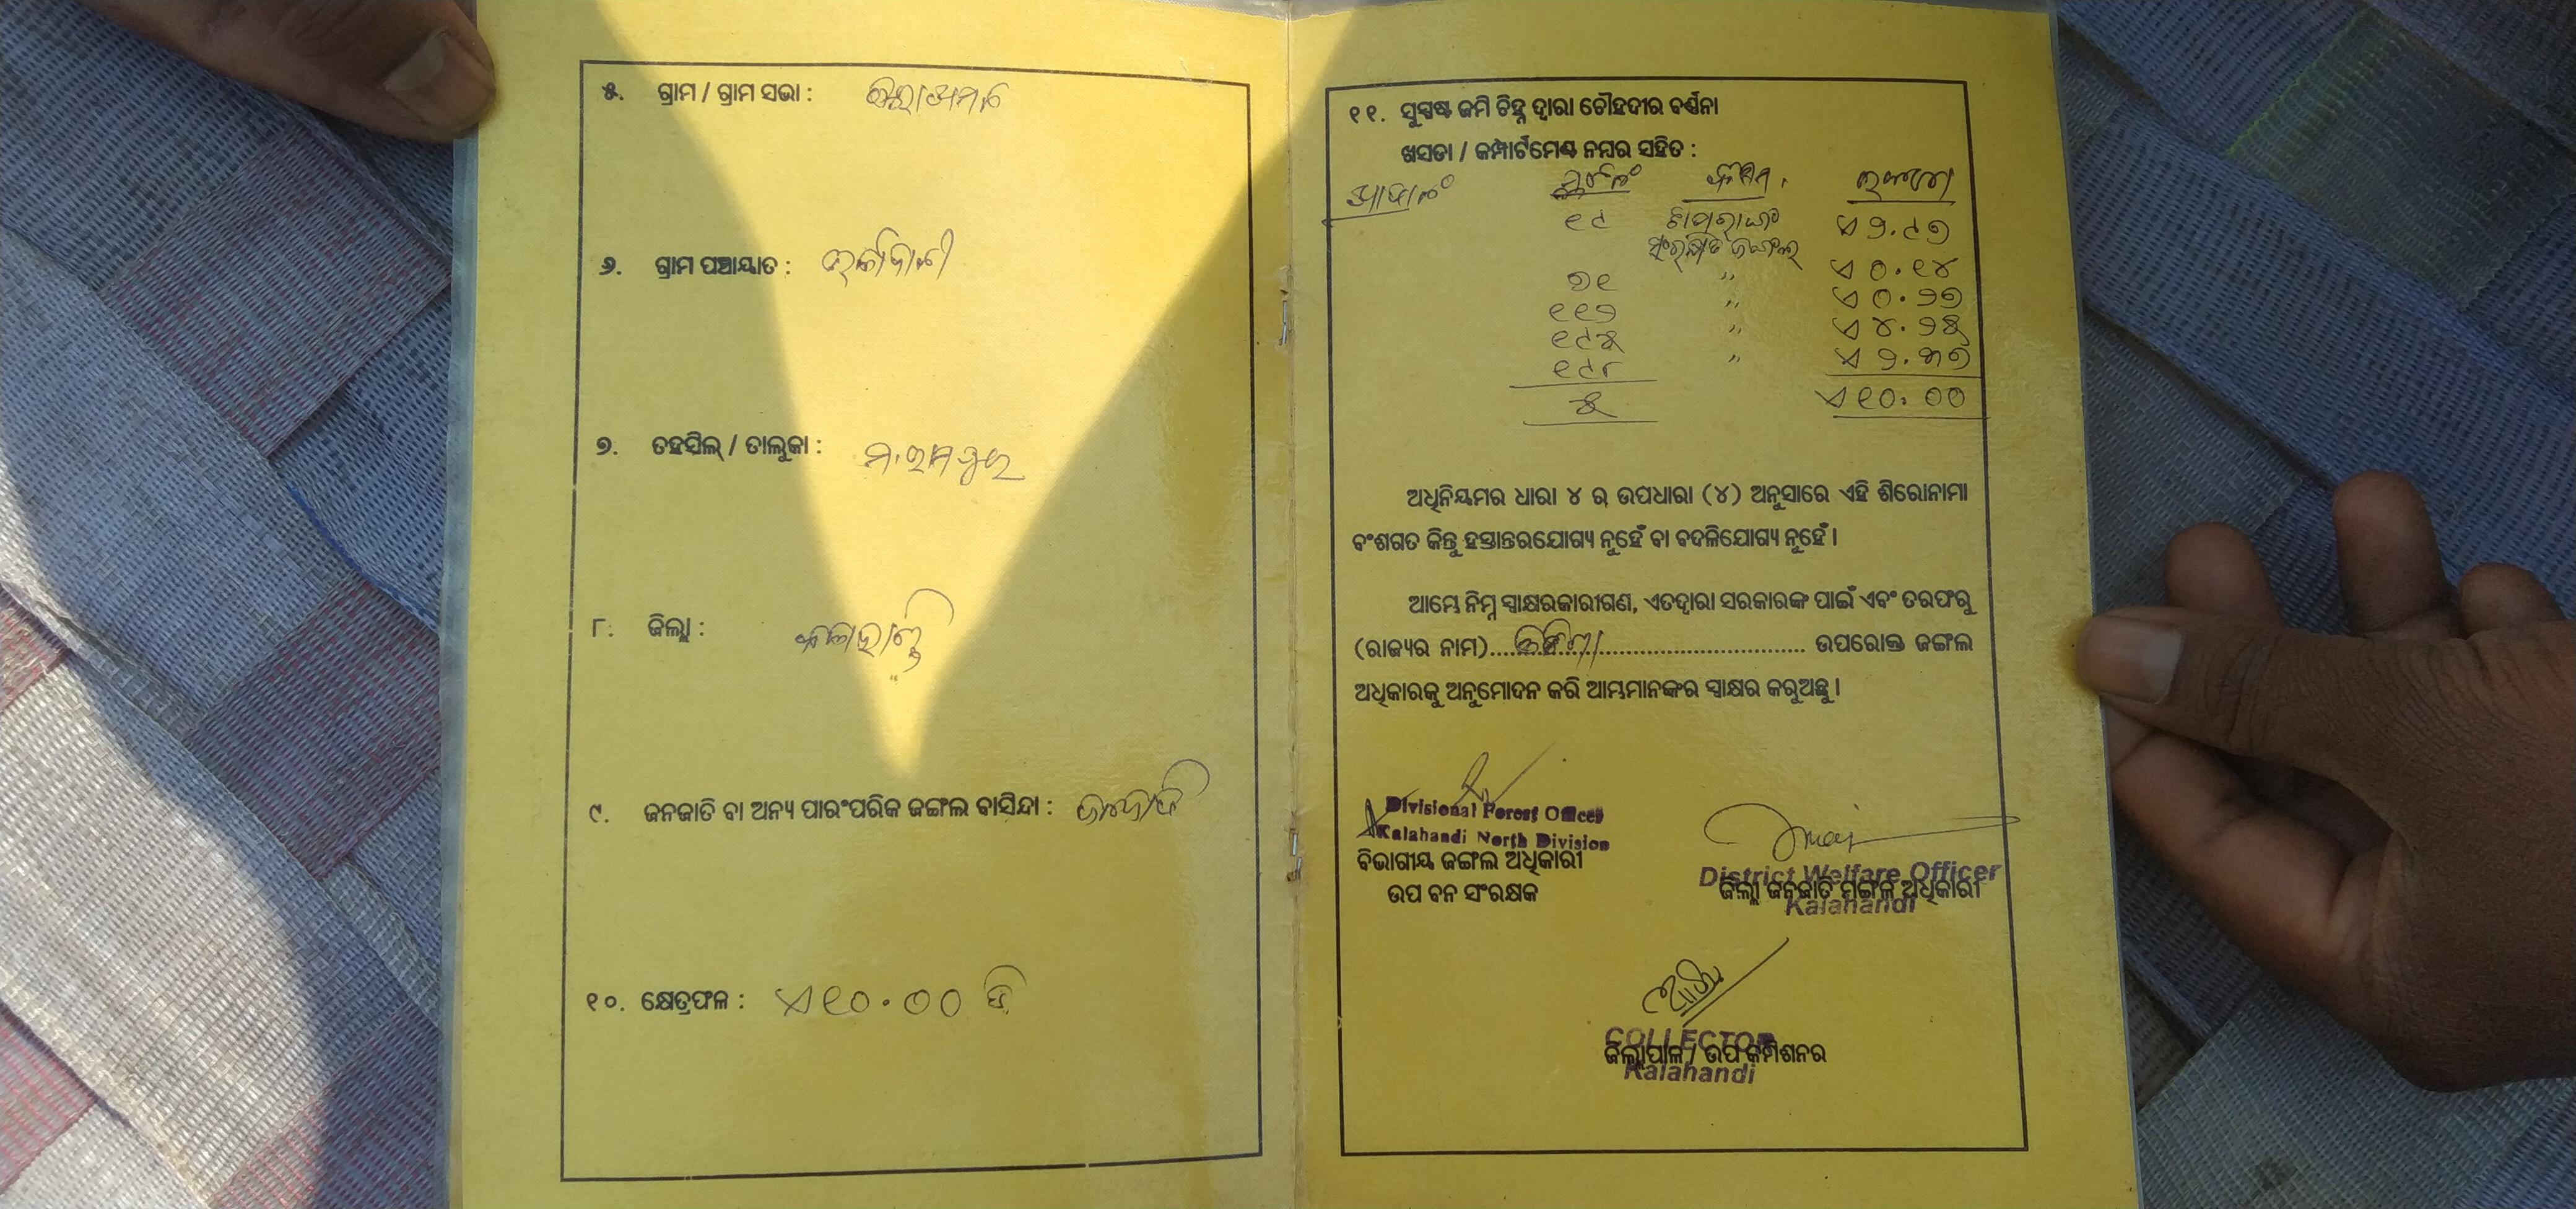 ୫. ଗ୍ରାମ / ଗ୍ରାମ ସଭା :
୬. ଗ୍ରାମ ପଞ୍ଚାୟାତ :
୭. ତହସିଲ୍ / ତାଲୁକା :
୮. ଜିଲ୍ଲା : କଳାହାଣ୍ଡି
୯. ଜନଜାତି ବା ଅନ୍ୟ ପାରଂପରିକ ଜଙ୍ଗଲ ବାସିନ୍ଦା :
୧୦. କ୍ଷେତ୍ରଫଳ : ଏ ୧୦.୦୦ ଡି
୧୧. ସୁସ୍ପଷ୍ଟ ଜମି ଚିହ୍ନ ଦ୍ୱାରା ଚୌହଦୀର ବର୍ଣ୍ଣନା
ଖସଡା / କମ୍ପାର୍ଟମେଣ୍ଟ ନମ୍ବର ସହିତ :
ପ୍ଲଟ ନଂ କିସମ
୧୯ ଏ ୨.୯୭
ସଂରକ୍ଷିତ ଜଙ୍ଗଲ
୭୧ " ଏ ୦.୧୪
୧୧୨ " ଏ ୦.୨୭
୧୯୫ " ଏ ୪.୨୫
୧୯୮ " ଏ ୨.୩୭
୫ ଏ ୧୦.୦୦
ଅଧିନିୟମର ଧାରା ୪ ର ଉପଧାରା (୪) ଅନୁସାରେ ଏହି ଶିରୋନାମା
ବଂଶଗତ କିନ୍ତୁ ହସ୍ତାନ୍ତରଯୋଗ୍ୟ ନୁହେଁ ବା ବଦଳିଯୋଗ୍ୟ ନୁହେଁ ।
ଆମ୍ଭେ ନିମ୍ନ ସ୍ୱାକ୍ଷରକାରୀଗଣ, ଏତଦ୍ୱାରା ସରକାରଙ୍କ ପାଇଁ ଏବଂ ତରଫରୁ
(ରାଜ୍ୟର ନାମ).......ଓଡିଶା....................... ଉପରୋକ୍ତ ଜଙ୍ଗଲ
ଅଧିକାରକୁ ଅନୁମୋଦନ କରି ଆମ୍ଭମାନଙ୍କର ସ୍ୱାକ୍ଷର କରୁଅଛୁ ।
Divisional Forest Officer
Kalahandi North Division
ବିଭାଗୀୟ ଜଙ୍ଗଲ ଅଧିକାରୀ
ଉପ ବନ ସଂରକ୍ଷକ
District Welfare Officer
ଜିଲ୍ଲା ଜନଜାତି ମଙ୍ଗଳ ଅଧିକାରୀ
Kalahandi
COLLECTOR
ଜିଲ୍ଲାପାଳ / ଉପ କମିଶନର
Kalahandi